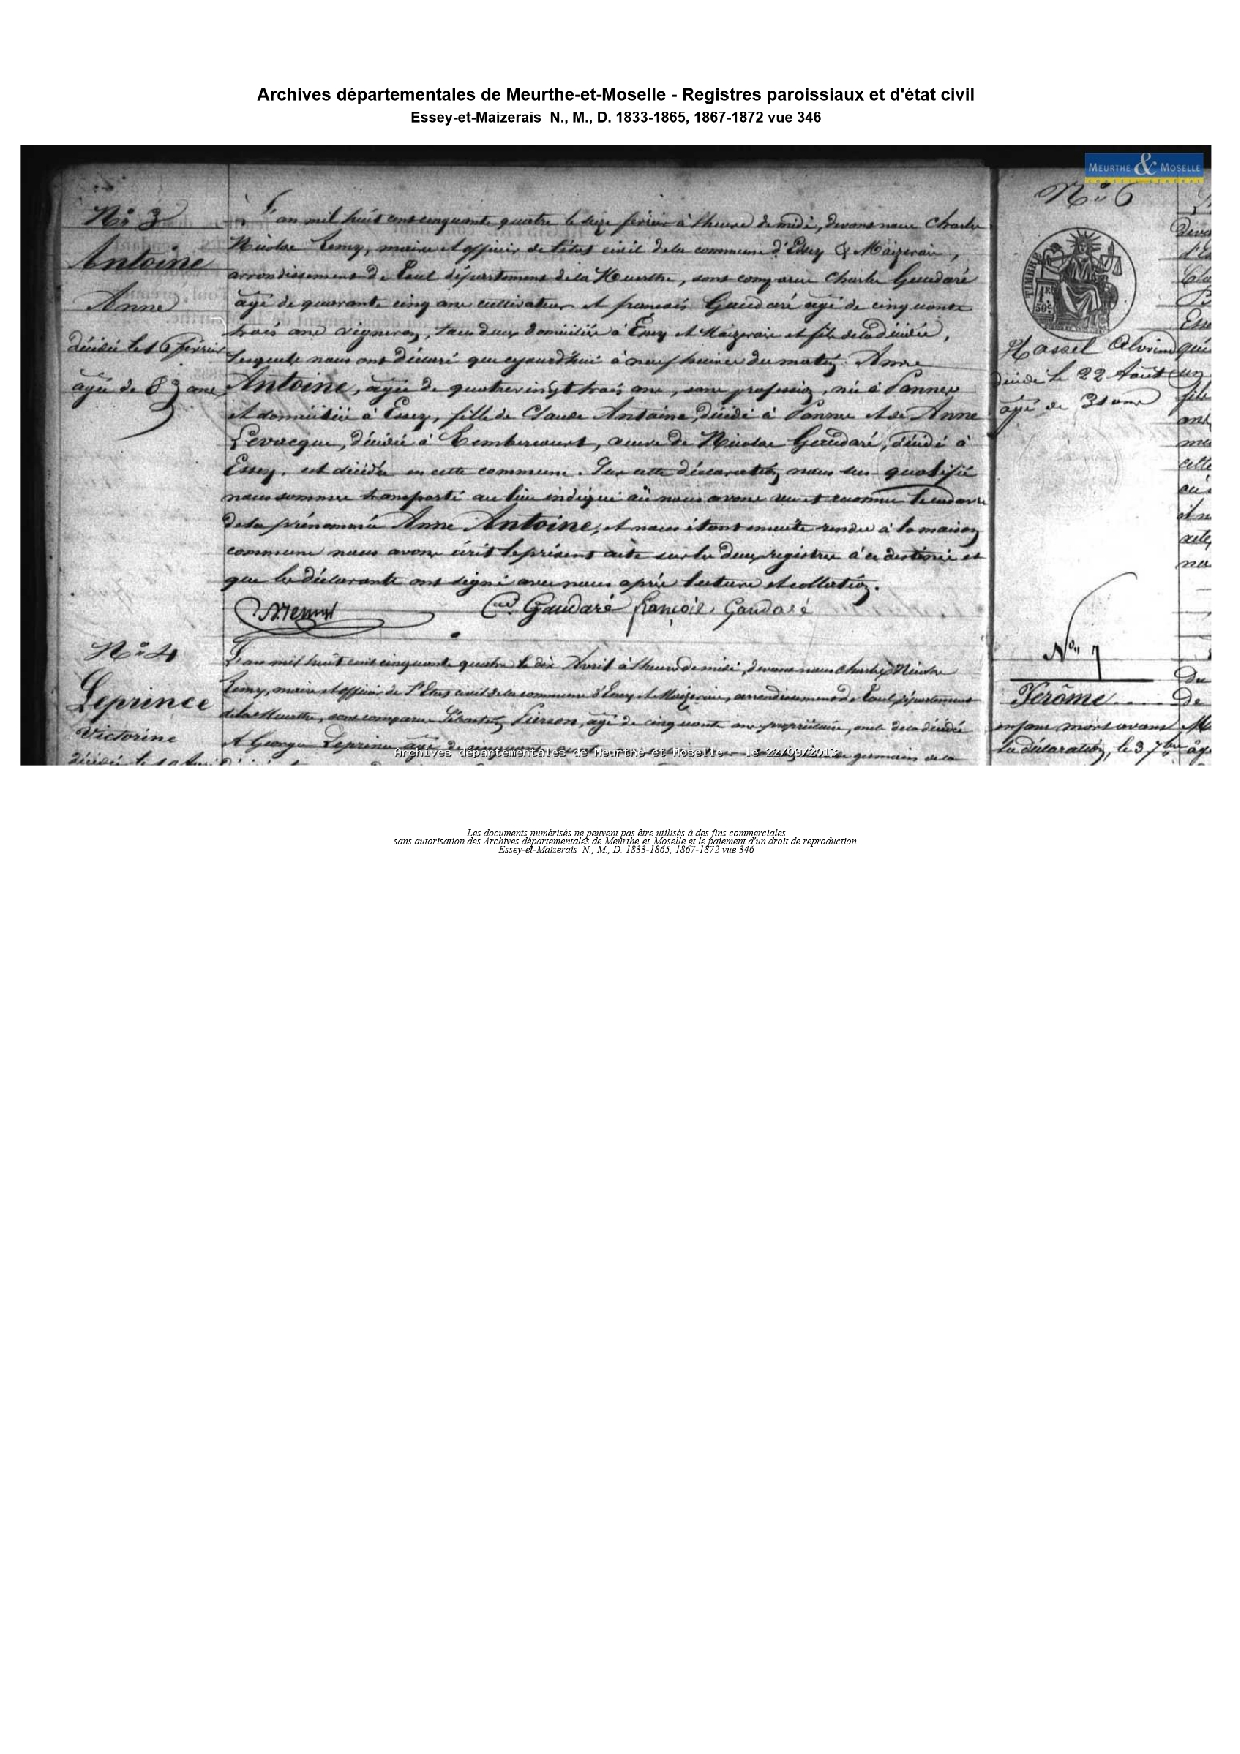 Archives départementales de Meurthe-et-Moselle - Registres paroissiaux et d'état civil
Essey-et-Maizerais N., M., D. 1833-1865, 1867-1872 vue 346
MEURTHE & MOSELLE
N° 3
Antoine
Anne
décédée le 16 février
agée de 83 ans
L'an mil huit cent cinquante quatre le seize février à l'heure de midi, devant nous Charles
Nicolas Remy, maire et officier de l'état civil de la commune d'Essey & Maizerais,
arrondissement de Toul département de la Meurthe, sont comparus Charles Gaudaré
agé de quarante cinq ans cultivateur et françois Gaudaré agé de cinquante
trois ans vigneron, tous deux domiciliés à Essey et Maizerais et fils de la décédée,
lesquels nous ont déclaré que cejourd'hui à neuf heures du matin Anne
Antoine, agée de quatre vingt trois ans, sans profession, née à Pannes
et domiciliée à Essey, fille de Claude Antoine, décédé à Pannes et de Anne
Levacque, décédée à Rembercourt, veuve de Nicolas Gaudaré, décédé à
Essey, est décédée en cette commune. Sur cette déclaration nous sus qualifié
nous sommes transporté au lieu indiqué où nous avons vu et reconnu le cadavre
de la prénommée Anne Antoine, et nous étant ensuite rendu à la maison
commune nous avons écrit le présent acte sur les deux registres à ce destinés et
que les déclarants ont signé avec nous après lecture et collation.
Remy Ch. Gaudaré françois Gaudaré
N° 4
Leprince
Victorine
L'an mil huit cent cinquante quatre le dix Avril à l'heure de midi, devant nous Charles Nicolas
Remy, maire et officier de l'Etat civil de la commune d'Essey et Maizerais, arrondissement de Toul, département
de la Meurthe, sont comparus Sébastien Pierson, agé de cinquante ans propriétaire, oncle de la décédée
et George Leprince
Archives départementales de Meurthe et Moselle
N° 6
TIMBRE
Hassel
décédé le 22 Août
agé de 31 ans
N° 7
Jérôme
enfant mort avant
la déclaration, le 3 7bre
Les documents numérisés ne peuvent pas être utilisés à des fins commerciales
sans autorisation des Archives départementales de Meurthe et Moselle et le paiement d'un droit de reproduction
Essey-et-Maizerais N., M., D. 1833-1865, 1867-1872 vue 346